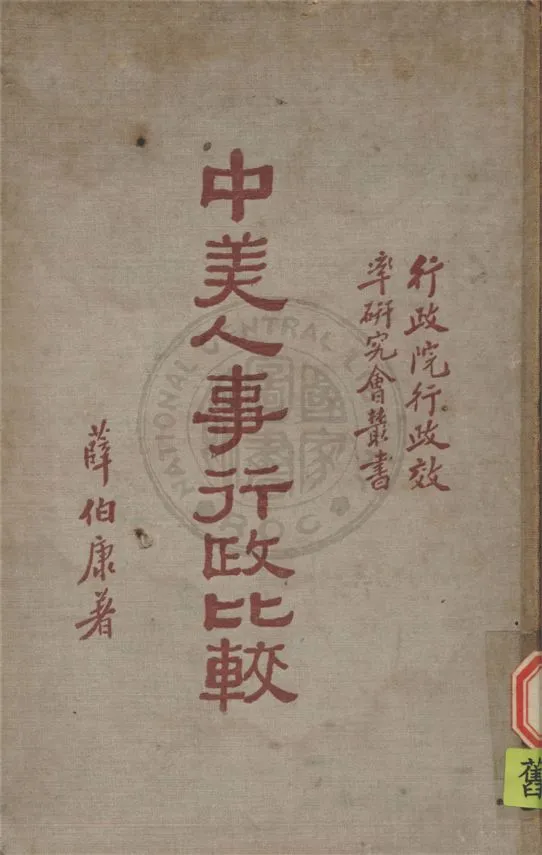 行政院行政效
率研究會叢書
中美人事行政比較
薛伯康著
NATIONAL CENTRAL L
國家
圖書
ROC
舊